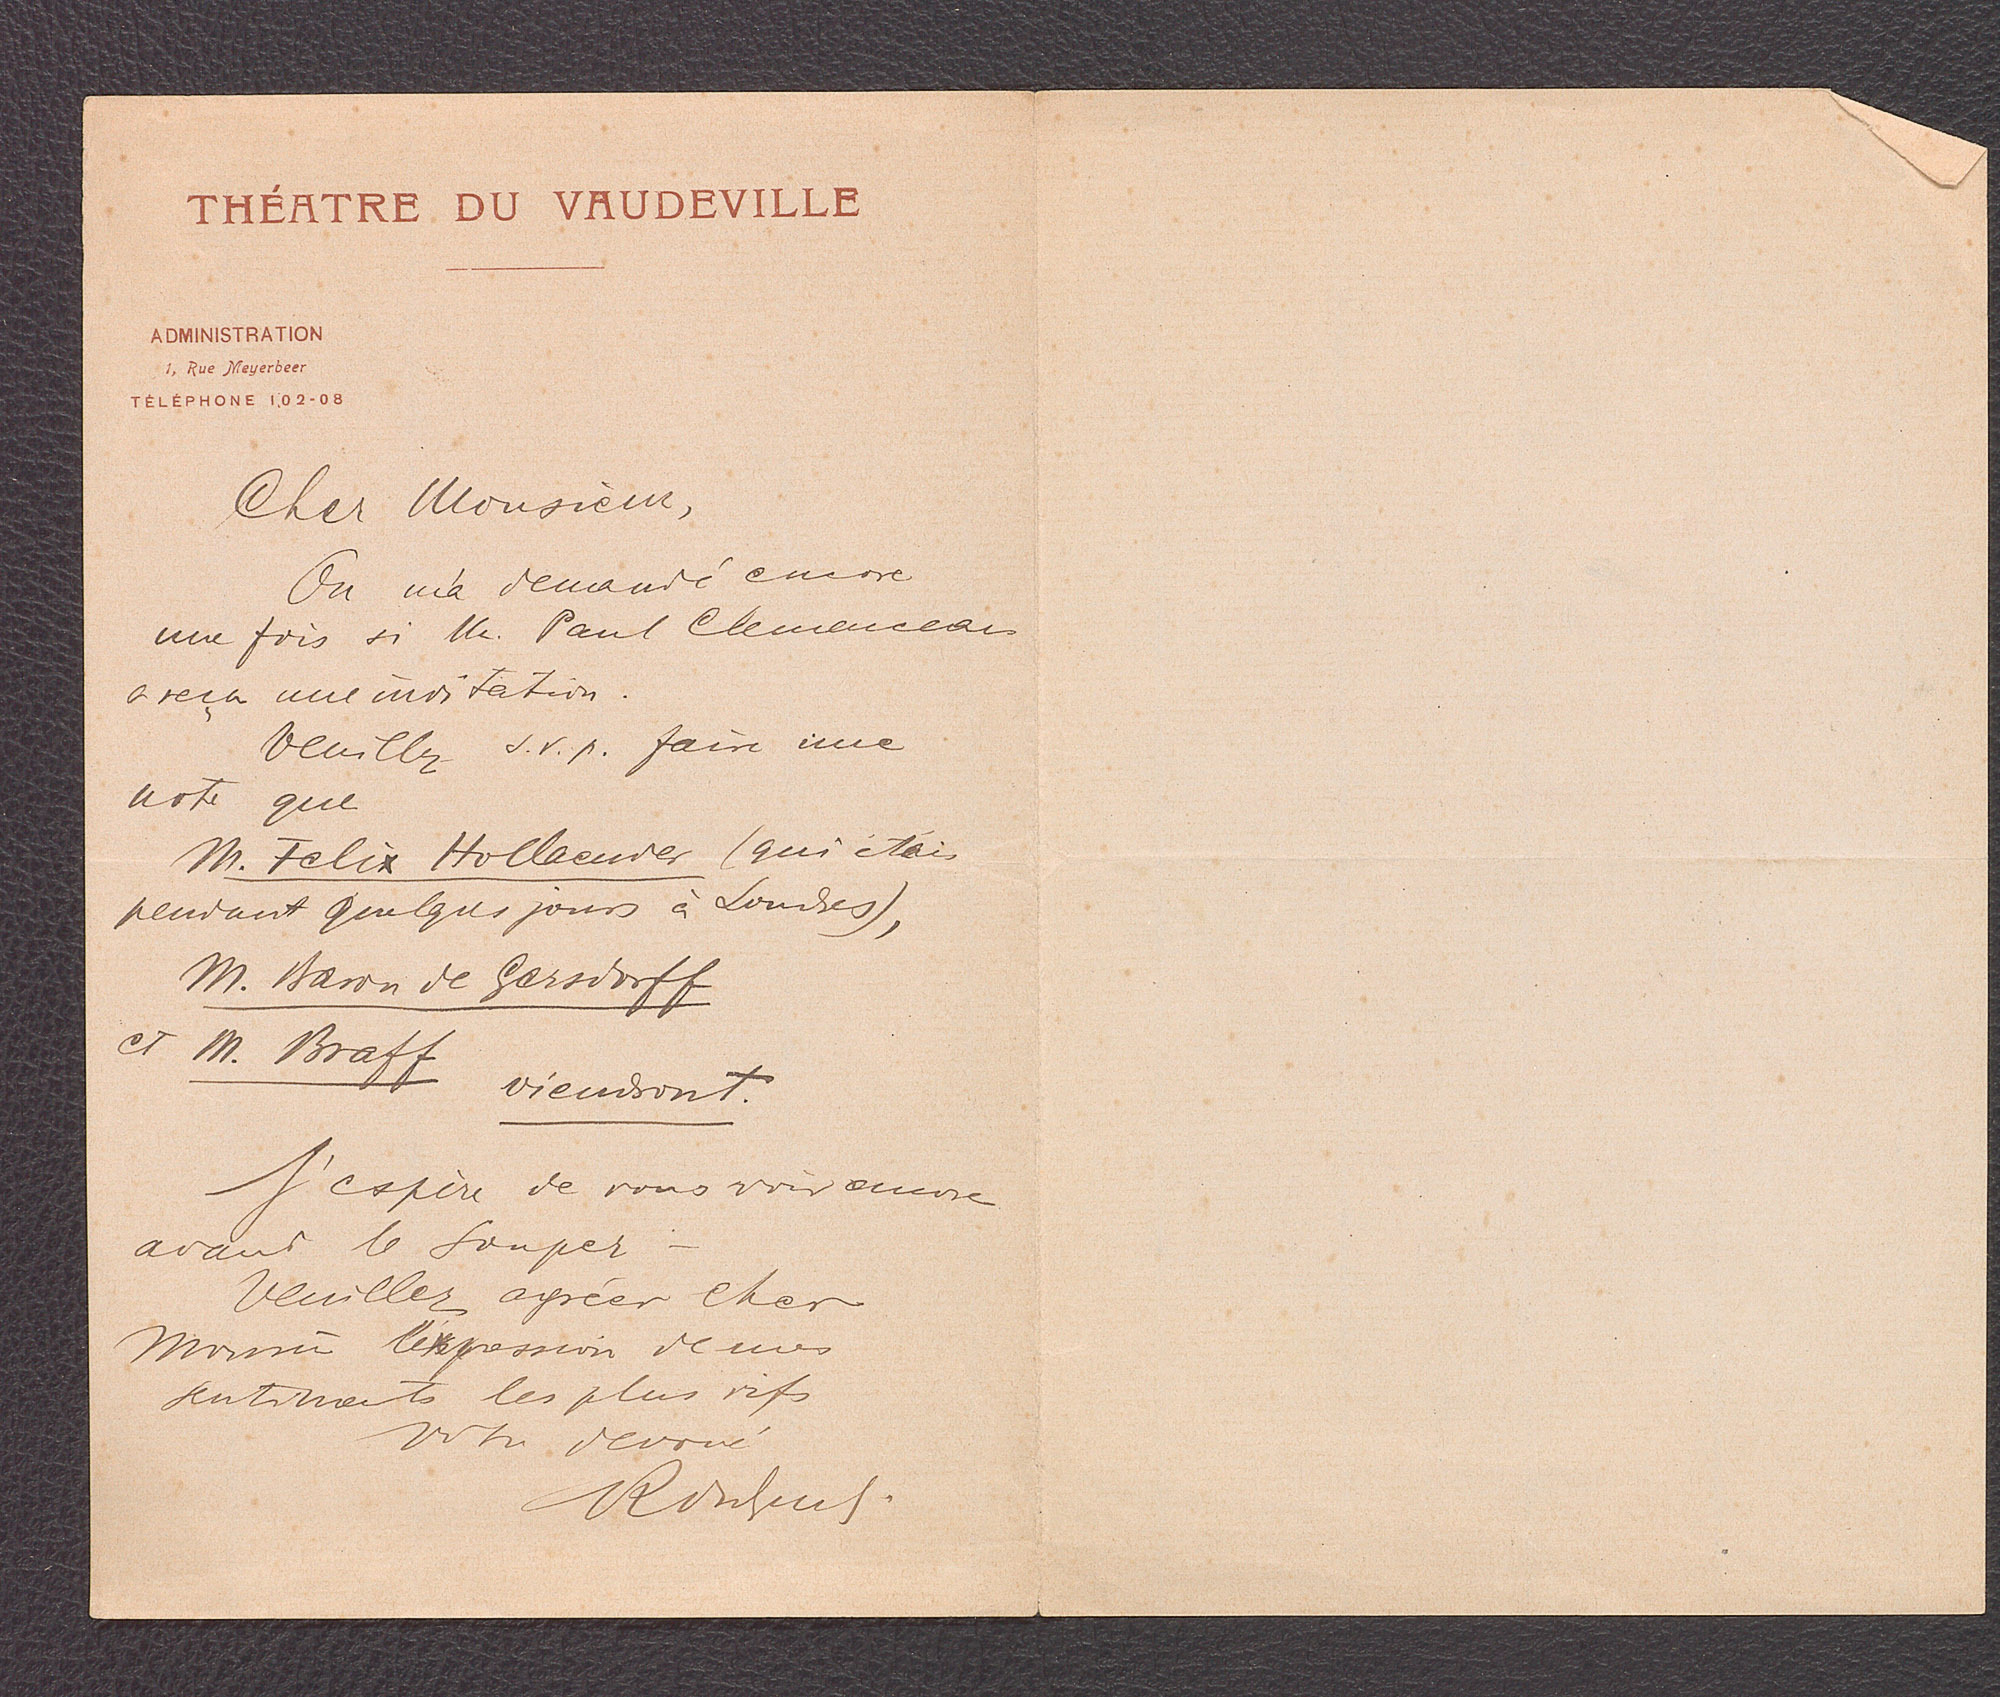 THÉATRE DU VAUDEVILLE
ADMINISTRATION
1, Rue Meyerbeer
TÉLÉPHONE 102-08
Cher Monsieur,
On m'a demandé encore
une fois si M. Paul Clemenceau
a reçu une invitation.
Veuillez s.v.p. faire une
note que
M. Felix Hollaender (qui étais
pendant quelques jours à Londres),
M. Baron de Gersdorff
et M. Braff
viendront.
J'espère de vous voir encore
avant le souper –
Veuillez agréer cher
Monsieur l'expression de mes
sentiments les plus vifs
votre devoué